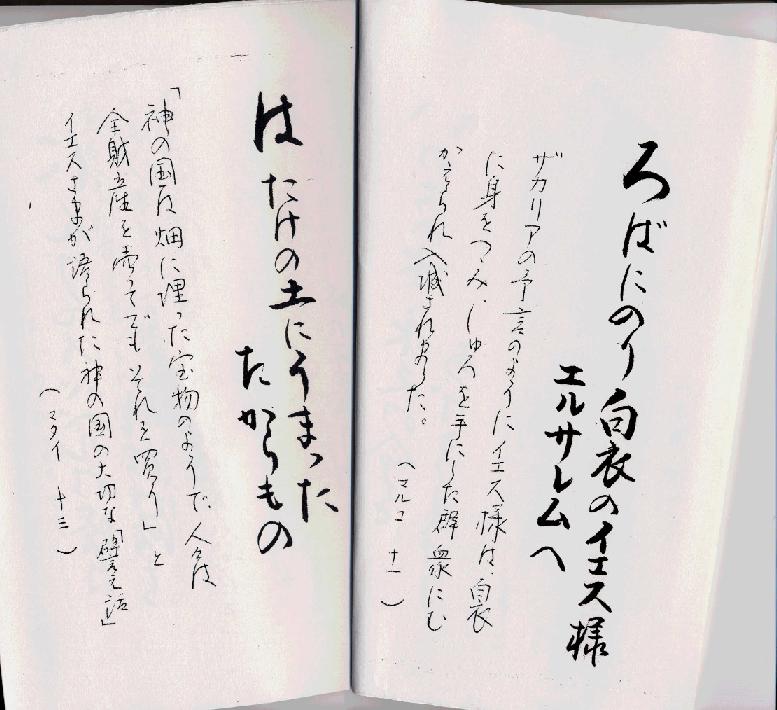 ろばにのり白衣のイエス様
エルサレムへ
ザカリアの予言のようにイエス様は、白衣
に身をつつみ、しゅろを手にした群衆にむ
かえられ入城されました。
（マルコ 十一）
はたけの土にうまった
たからもの
「神の国は畑に埋った宝物のようで、人々は
全財産を売ってでもそれを買う」と
イエスさまが語られた神の国の大切な譬え話」
（マタイ 十三）